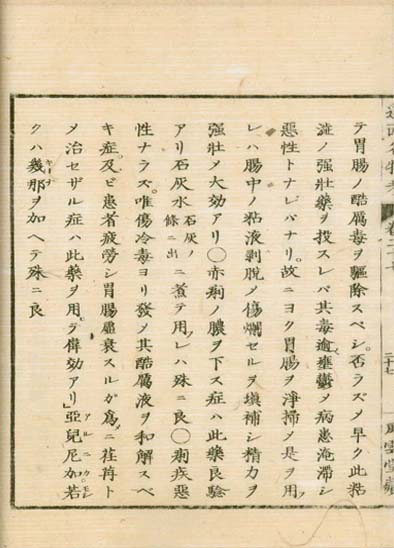 テ胃腸ノ酷厲毒ヲ驅除スベシ。否ラズメ早ク此粘
澁ノ强壯藥ヲ投スレバ其毒逾壅鬱メ病患淹滞シ
惡性トナレバナリ。故ニヨク胃腸ヲ淨掃メ是ヲ用フ
レハ腸中ノ粘液剥脱メ傷爛セルヲ塡補シ精力ヲ
強壯メ大効アリ〇赤痢ノ膿ヲ下ス症ハ此藥良驗
アリ石灰水石灰ノ條ニ出ニ煮テ用フレハ殊ニ良〇痢疾惡
性ナラズ。唯傷冷毒ヨリ發メ其酷厲液ヲ和解スベ
キ症。及ビ患者疲勞シ胃腸虛衰スルガ爲ニ荏苒ト
メ治セザル症ハ此藥ヲ用テ偉効アリ」亞兒尼加若
クハ幾那ヲ加ヘテ殊ニ良